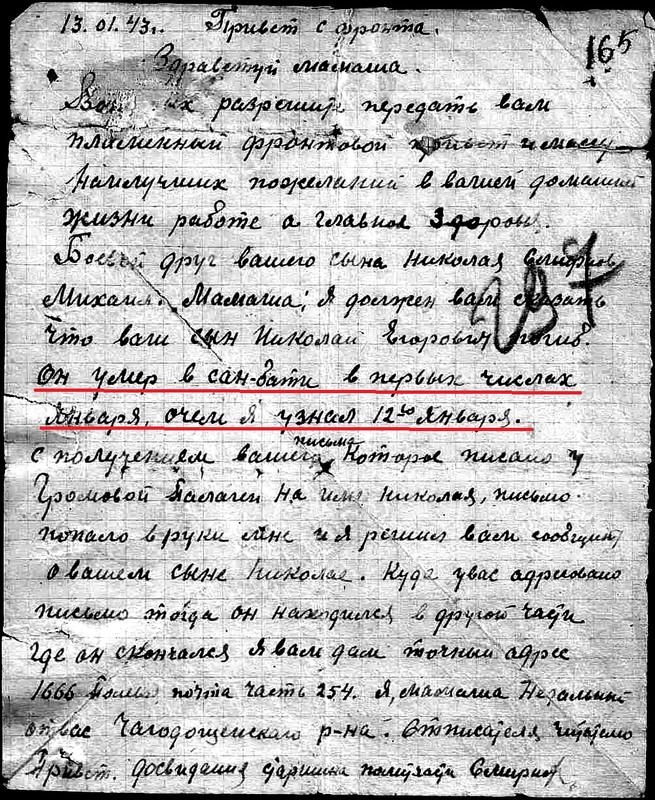 13.01.43г. Привет с фронта.
165
Здравствуй мамаша.
разрешите передать вам
пламенный фронтовой привет и массу
наилучших пожеланий в вашей домашней
жизни работе а главное здоровья.
Боевой друг вашего сына Николая
Михаил. Мамаша, я должен вам сказать
что ваш сын Николай Егорович погиб.
Он умер в сан-бати в первых числах
Января, очем я узнал 12го Января.
с получением вашего письма которое писано у
Громовой на имя Николая, письмо
попало в руки мне и я решил вам сообщить
о вашем сыне Николае. Куда увас адрисовано
письмо тогда он находился в другой части
где он скончался Я вам дам точный адрес
1666 Полевы почта часть 254. Я, мамаша
отвас Чагодощенскаго р-на. Отписателя читателю
Привет. досвидания старшина